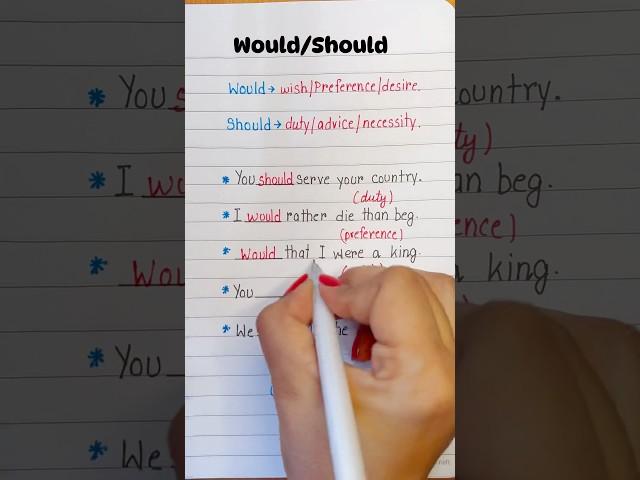 Would/Should
Would → wish/Preference/desire.
Should → duty/advice/necessity.
* You should serve your country.
(duty)
* I would rather die than beg.
(preference)
* Would that I were a king.
* You
* We he